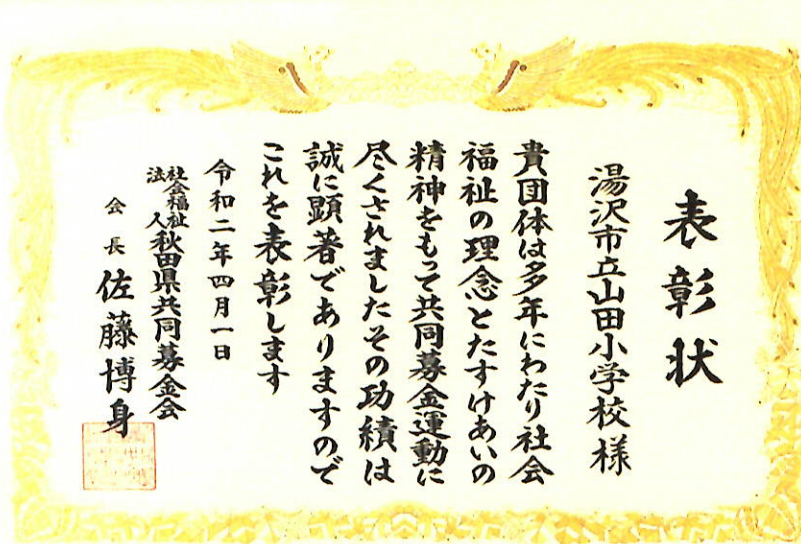 表彰状
湯沢市立山田小学校様
貴団体は多年にわたり社会
福祉の理念とたすけあいの
精神をもって共同募金運動に
尽くされましたその功績は
誠に顕著でありますので
これを表彰します
令和二年四月一日
社会福祉法人秋田県共同募金会
会長 佐藤博身